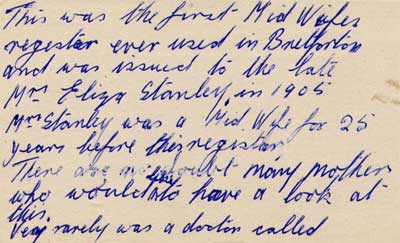 This was the first Mid Wifes
register ever used in Bretforton
and was issued to the late
Mrs Eliza Stanley in 1905
Mrs Stanley was a Mid Wife for 25
years before this register
There are no doubt many mothers
who would like to have a look at
this.
Very rarely was a doctor called